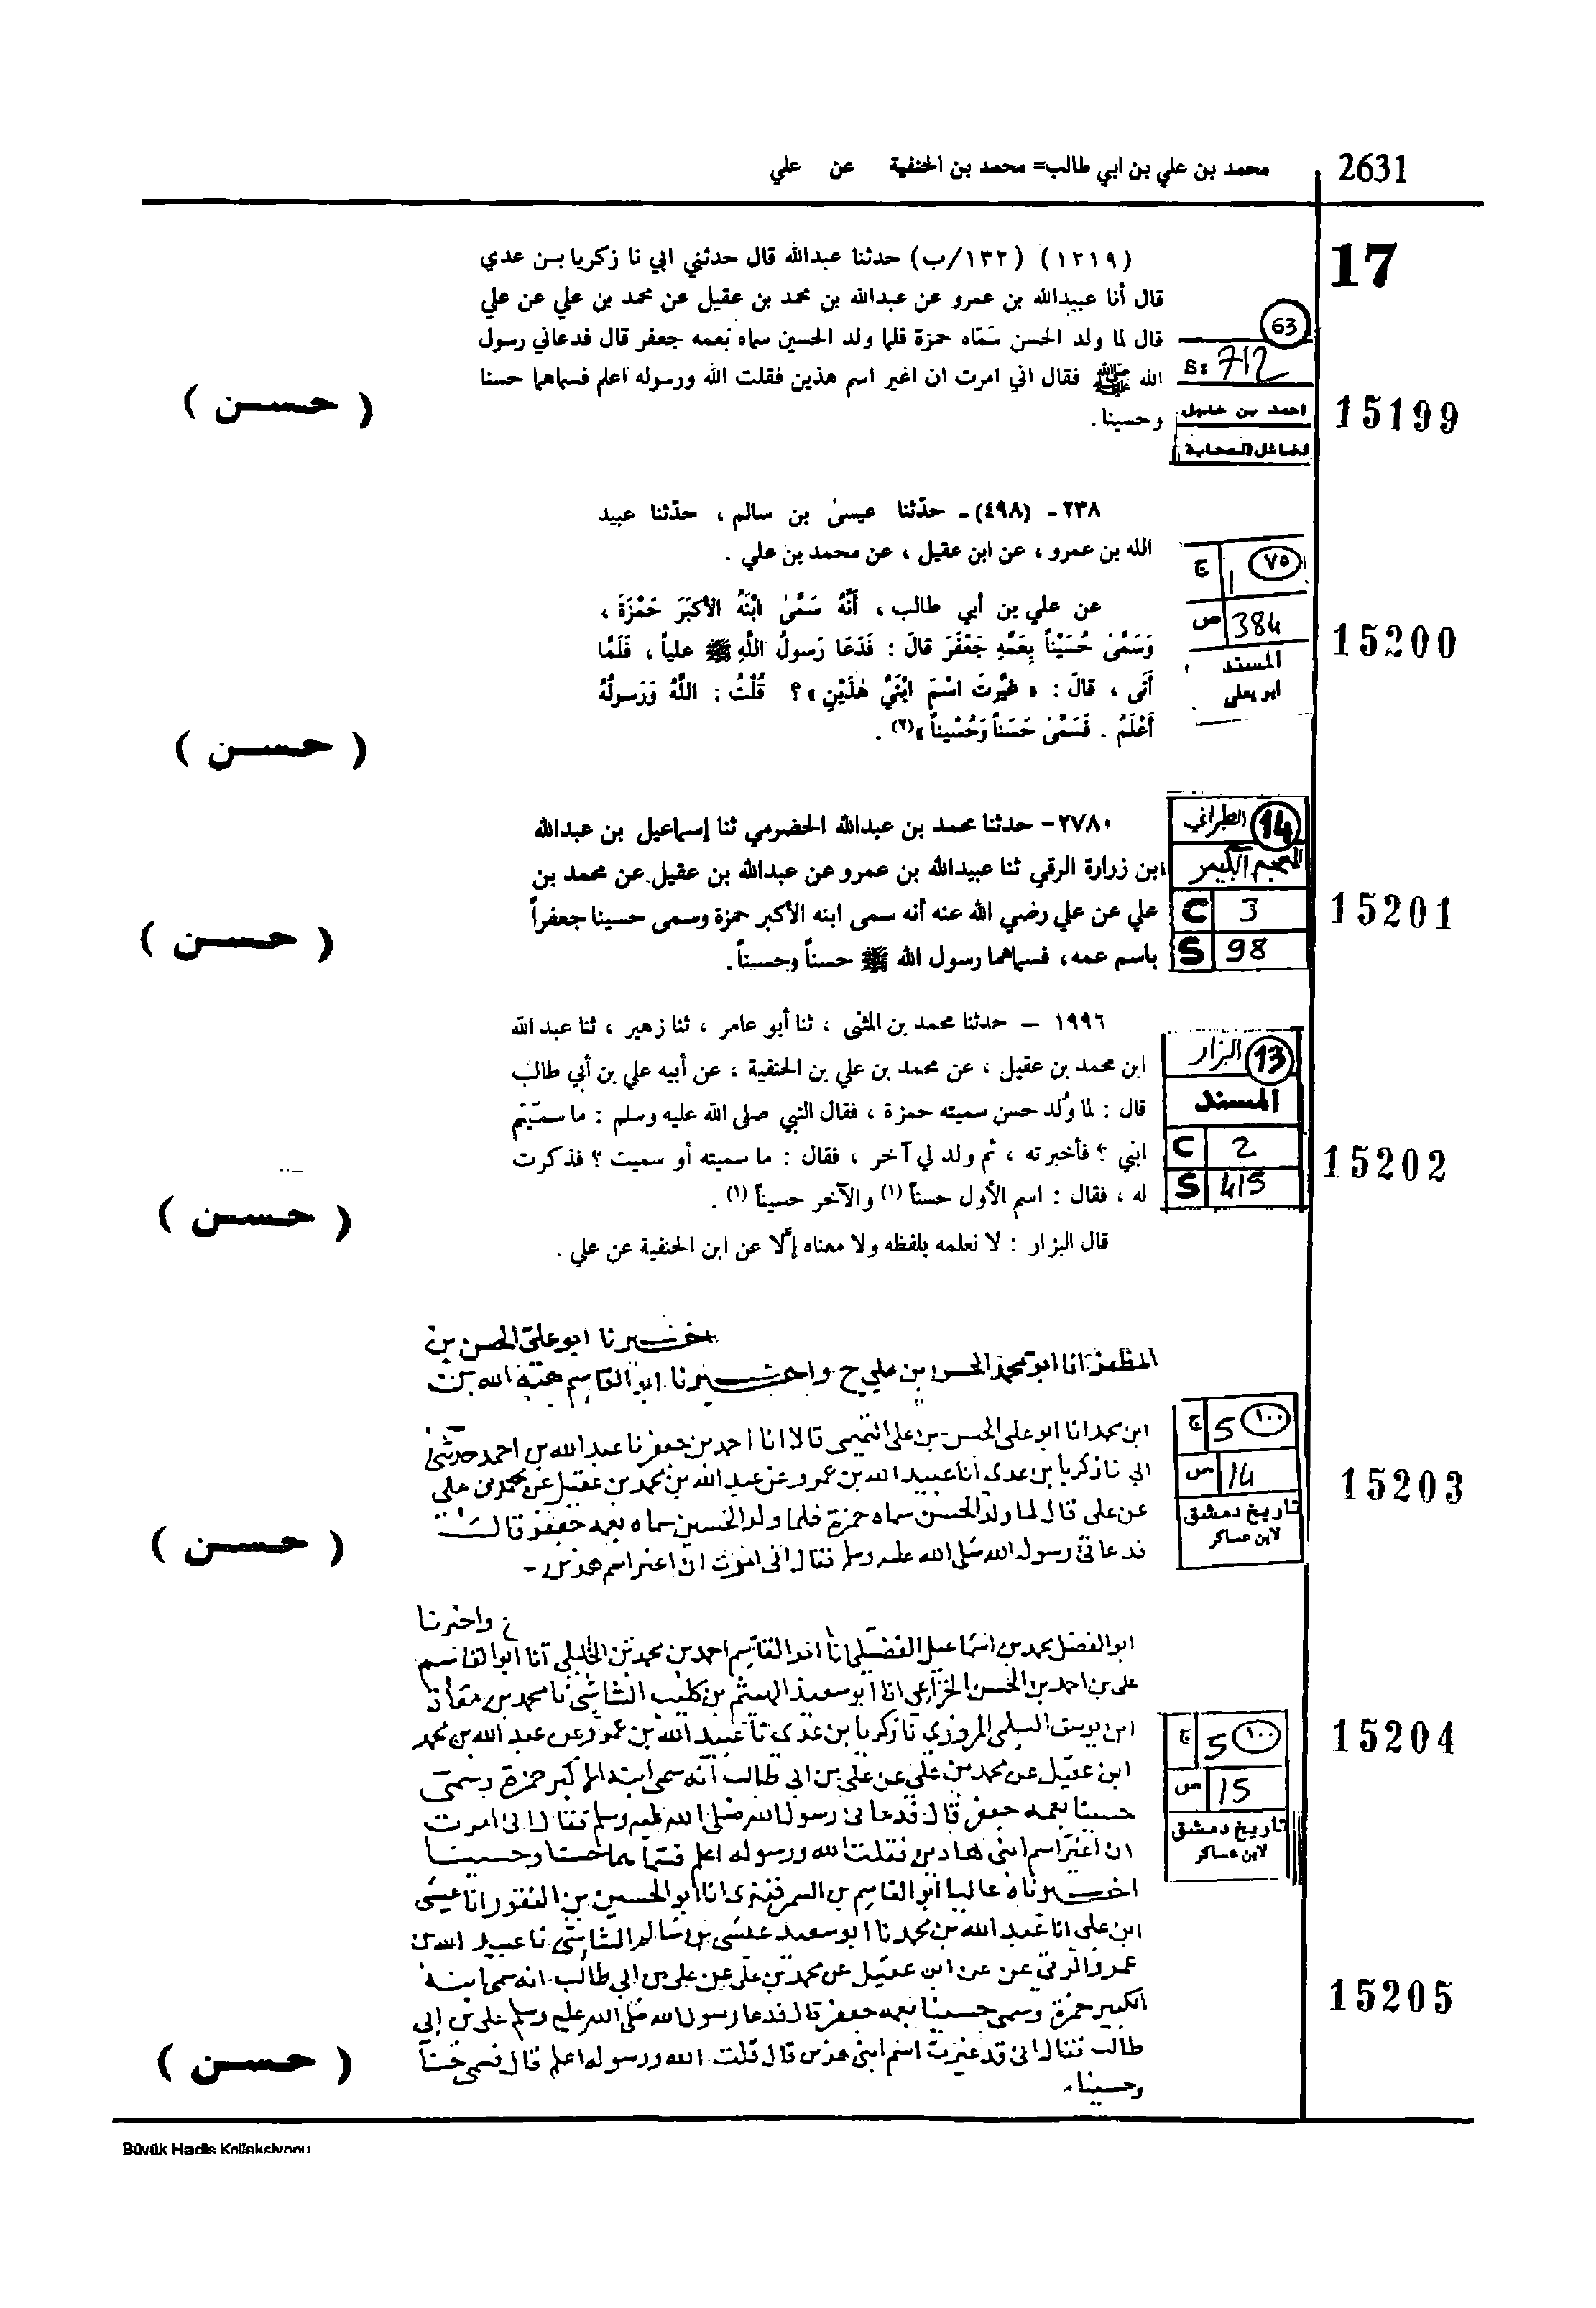 محمد بن علي بن ابي طالب= محمد بن الحنفية عن علي
2631
17
(١٢١٩) (١٣٢/ب) حدثنا عبدالله قال حدثني ابي نا زكريا بن عدي
قال أنا عبيدالله بن عمرو عن عبدالله بن محمد بن عقيل عن محمد بن علي عن علي
قال لما ولد الحسن سماه حمزة فلما ولد الحسين سماه بعمه جعفر قال فدعاني رسول
الله ﷺ فقال اني امرت ان اغير اسم هذين فقلت الله ورسوله اعلم فسماهما حسنا
وحسينا.
63
S: 712
احمد بن حنبل
فضائل الصحابة
15199
( حسن )
٢٣٨- (٤٩٨)- حدّثنا عيسىٰ بن سالم ، حدّثنا عبيد
الله بن عمرو ، عن ابن عقيل ، عن محمد بن علي .
عن علي بن أبي طالب ، أَنَّهُ سَمَّىٰ ابْنَهُ الأكبَرَ حَمْزَةَ ،
وَسَمَّىٰ حُسَيْناً بِعَمِّهِ جَعْفَرَ قالَ : فَدَعَا رَسولُ اللَّهِ ﷺ علياً ، فَلَمَّا
أَتَى ، قالَ : « غَيَّرتَ اسْمَ ابْنَيَّ هٰذَيْنِ » ؟ قُلْتُ : اللَّهُ وَرَسولُهُ
أَعْلَمُ . فَسَمَّىٰ حَسَناً وَحُسْيناً »(٢) .
٧٥
ج 1
ص 384
المسند
ابو يعلى
15200
( حسن )
٢٧٨٠- حدثنا محمد بن عبدالله الحضرمي ثنا إسماعيل بن عبدالله
ابن زرارة الرقي ثنا عبيدالله بن عمرو عن عبدالله بن عقيل عن محمد بن
علي عن علي رضي الله عنه أنه سمى ابنه الأكبر حمزة وسمى حسينا جعفراً
باسم عمه، فسماهما رسول الله ﷺ حسناً وحسيناً.
14 الطبراني
المعجم الكبير
C 3
S 98
15201
( حسن )
١٩٩٦ – حدثنا محمد بن المثنى ، ثنا أبو عامر ، ثنا زهير ، ثنا عبد الله
ابن محمد بن عقيل ، عن محمد بن علي بن الحنفية ، عن أبيه علي بن أبي طالب
قال : لما وُلد حسن سميته حمزة ، فقال النبي صلى الله عليه وسلم : ما سمّيتم
ابني ؟ فأخبرته ، ثم ولد لي آخر ، فقال : ما سميته أو سميت ؟ فذكرت
له ، فقال : اسم الأول حسناً (١) والآخر حسيناً (١) .
قال البزار : لا نعلمه بلفظه ولا معناه إلّا عن ابن الحنفية عن علي .
13 البزار
المسند
C 2
S 415
15202
( حسن )
اخبرنا ابو على الحسن بن
المظفر انا ابو محمد الحسن بن علي ح واخبرنا ابو القاسم هبة الله بن
ابن محمد انا ابو على الحسن بن على التميمى قالا انا احمد بن جعفر نا عبد الله بن احمد حدثنى
ابي نا زكريا بن عدي انا عبيد الله بن عمرو عن عبد الله بن محمد بن عقيل عن محمد بن علي
عن على قال لما ولد الحسن سماه حمزة فلما ولد الحسين سماه بعمه جعفر قال
فدعاني رسول الله صلى الله عليه وسلم فقال انى امرت ان اغير اسم هذين -
١٠٠
ج 5
ص 14
تاريخ دمشق
لابن عساكر
15203
( حسن )
واخبرنا
ابو الفضل محمد بن اسماعيل الفضيلى انا ابو القاسم احمد بن محمد بن الخليلى انا ابو القاسم
على بن احمد بن الحسن الخزاعي انا ابو سعيد الهيثم بن كليب الشاشى نا محمد بن معاذ
ابن يوسف السلمى المروزي نا زكريا بن عدى نا عبيد الله بن عمرو عن عبد الله بن محمد
ابن عقيل عن محمد بن علي عن على بن ابي طالب انه سمى ابنه الاكبر حمزة وسمى
حسينا بعمه جعفر قال فدعانى رسول الله صلى الله عليه وسلم فقال انى امرت
ان اغير اسم ابنى هاذين فقلت الله ورسوله اعلم فسماهما حسنا وحسينا
اخبرناه عاليا ابو القاسم بن السمرقندى انا ابو الحسين بن النقور انا عيسى
ابن على انا عبد الله بن محمد نا ابو سعيد عيسى بن سالم الشاشى نا عبيد الله بن
عمرو الرقى عن عن ابن عقيل عن محمد بن على عن على بن ابي طالب انه سمى ابنه
الكبير حمزة وسمى حسينا بعمه جعفر قال فدعا رسول الله صلى الله عليه وسلم على بن ابى
طالب فقال انى قد غيرت اسم ابنى هذين قال قلت الله ورسوله اعلم قال فسمى حسنا
وحسينا.
١٠٠
ج 5
ص 15
تاريخ دمشق
لابن عساكر
15204
15205
( حسن )
Büyük Hadis Kolleksiyonu